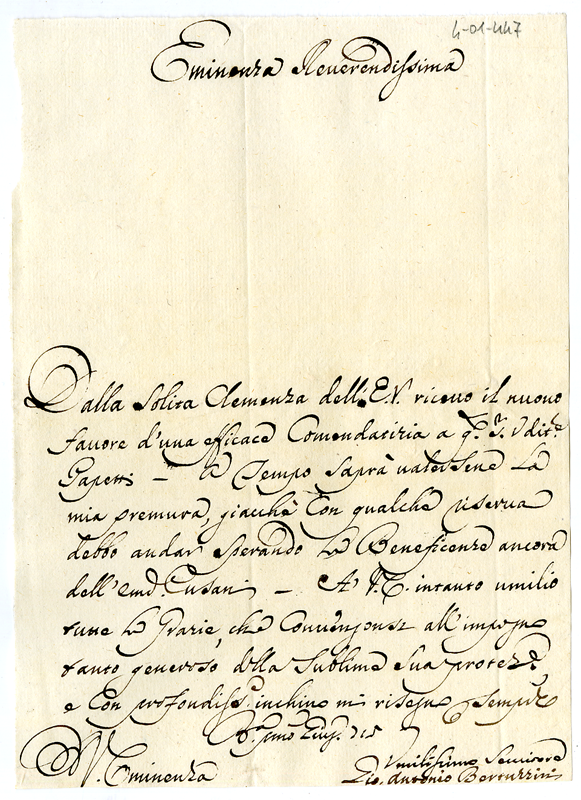 4-01-447
Eminenza Reverendissima
Dalla solita Clemenza dell'E.V. ricevo il nuovo
favore d'una efficace Comendatizia a q.to S. Udit.e
Gapetti — A Tempo saprà valersene la
mia premura, giacchè con qualche riserva
debbo andar sperando le Beneficenze ancora
dell'em.o Cusani — A V.E. intanto umilio
tutte le Grazie, che convengonsi all'impegno
tanto generoso della sublime sua protez.e
e con profondiss.o inchino mi rassegno sempre
primo 715
V. Eminenza
Umilissimo Servitore
Gio. Antonio Bertuzzini